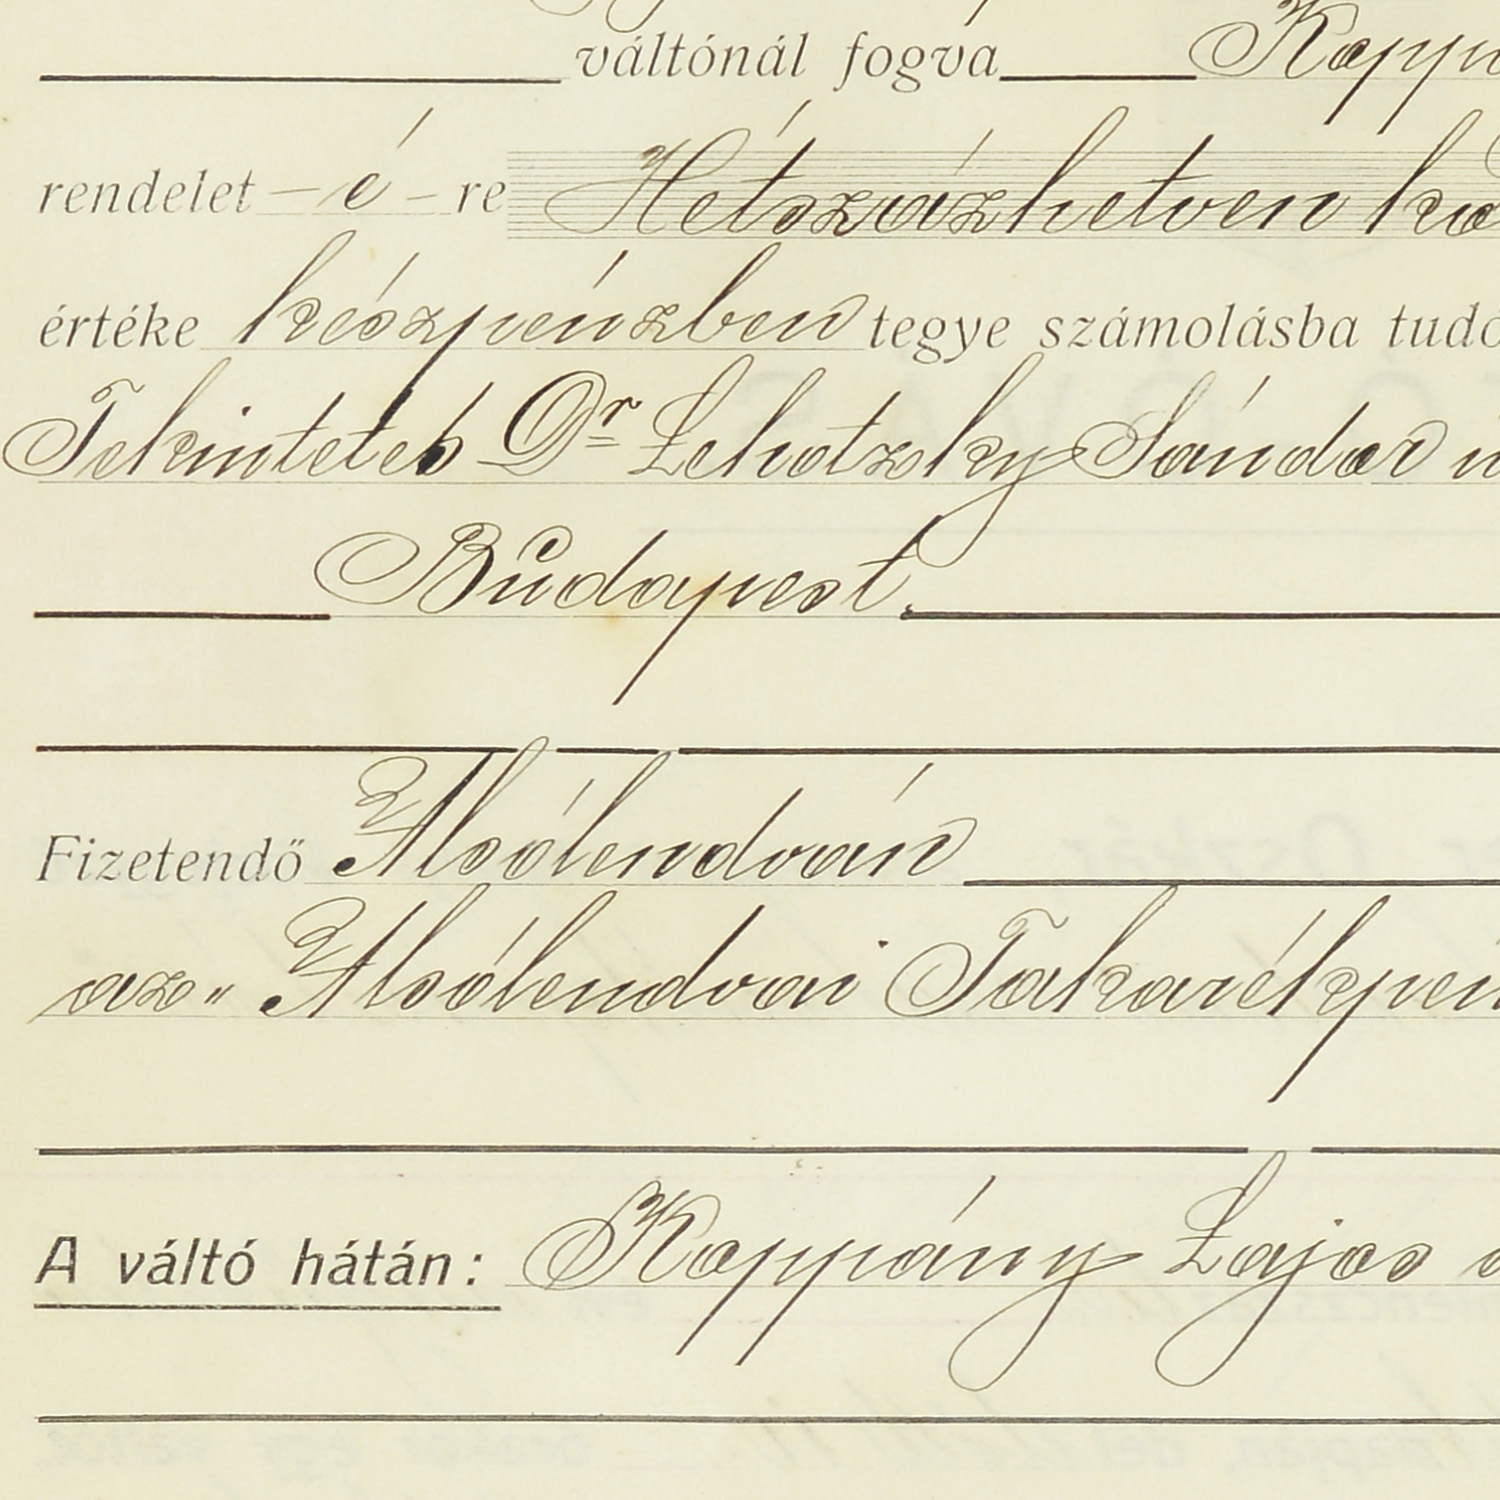 váltónál fogva Kopp
rendelet – é – re Hétszázhetven ko
értéke készpénzben tegye számolásba tudo
Tekintetes Dr Lehotzky Sándor
Budapest.
Fizetendő Alsólendván
az „ Alsólendvai Takarékpén
A váltó hátán: Koppány Lajos